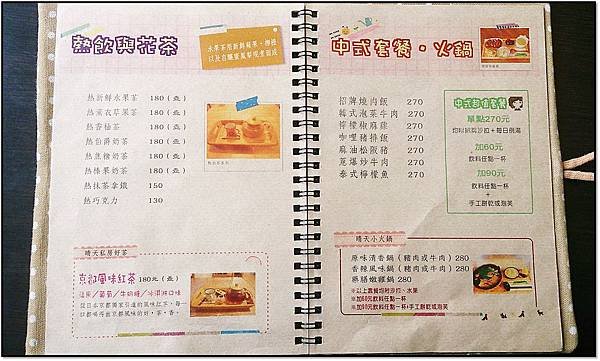 熱飲與花茶
水果茶用新鮮蘋果、柳橙
以及自釀蜜鳳梨現煮而成
熱新鮮水果茶 180(壺)
熱薰衣草果茶 180(壺)
熱香柚茶 180(壺)
熱伯爵奶茶 180(壺)
熱焦糖奶茶 180(壺)
熱榛果奶茶 180(壺)
熱抹茶拿鐵 150
熱巧克力 130
晴天私房好茶
京都風味紅茶 180元(壺)
從日本京都獨家引進的風味紅茶,每一
口都喝得出京都風味的好,茶,香。
中式套餐·火鍋
招牌燒肉飯 270
韓式泡菜牛肉 270
檸檬椒麻雞 270
咖哩豬排飯 270
麻油松阪豬 270
蔥爆炒牛肉 270
泰式檸檬魚 270
中式超值套餐
單點270元
+加60元
飲料任點一杯
+加90元
飲料任點一杯
+
手工餅乾或泡芙
晴天小火鍋
原味清香鍋(豬肉或牛肉)280
香辣風味鍋(豬肉或牛肉)280
藥膳嫩雞鍋 280
※以上套餐均附沙拉、水果
※加60元飲料任點一杯
※加90元飲料任點一杯+手工餅乾或泡芙